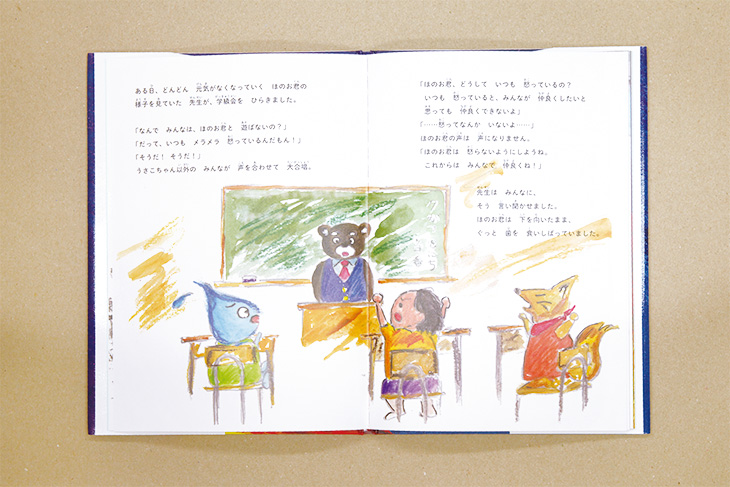 ある日、どんどん 元気がなくなっていく ほのお君の
様子を見ていた 先生が、学級会を ひらきました。
「なんで みんなは、ほのお君と 遊ばないの？」
「だって、いつも メラメラ 怒っているんだもん！」
「そうだ！ そうだ！」
うさこちゃん以外の みんなが 声を合わせて 大合唱。
「ほのお君、どうして いつも 怒っているの？
いつも 怒っていると、みんなが 仲良くしたいと
思っても 仲良くできないよ」
「……怒ってなんか いないよ……」
ほのお君の声は 声になりません。
「ほのお君は 怒らないようにしようね。
これからは みんなで 仲良くね！」
先生は みんなに、
そう 言い聞かせました。
ほのお君は 下を向いたまま、
ぐっと 歯を 食いしばっていました。